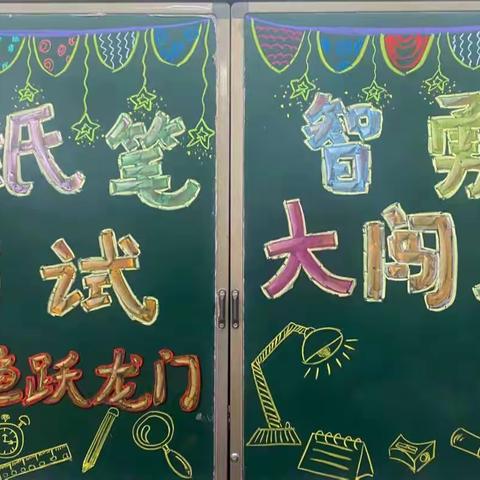 纸笔
试
鱼跃龙门
智勇
大闯